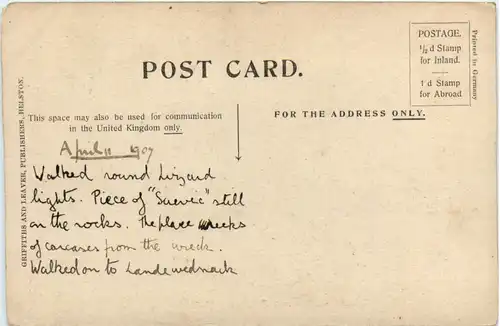 POST CARD.
POSTAGE.
½d Stamp
for Inland.
1d Stamp
for Abroad
Printed in Germany
This space may also be used for communication
in the United Kingdom only.
FOR THE ADDRESS ONLY.
GRIFFITHS AND LEAVER, PUBLISHERS, HELSTON.
April 11 1907
Walked round Lizard
lights. Piece of "Suevic" still
on the rocks. The place reeks
of carcases from the wreck.
Walked on to Landewednack